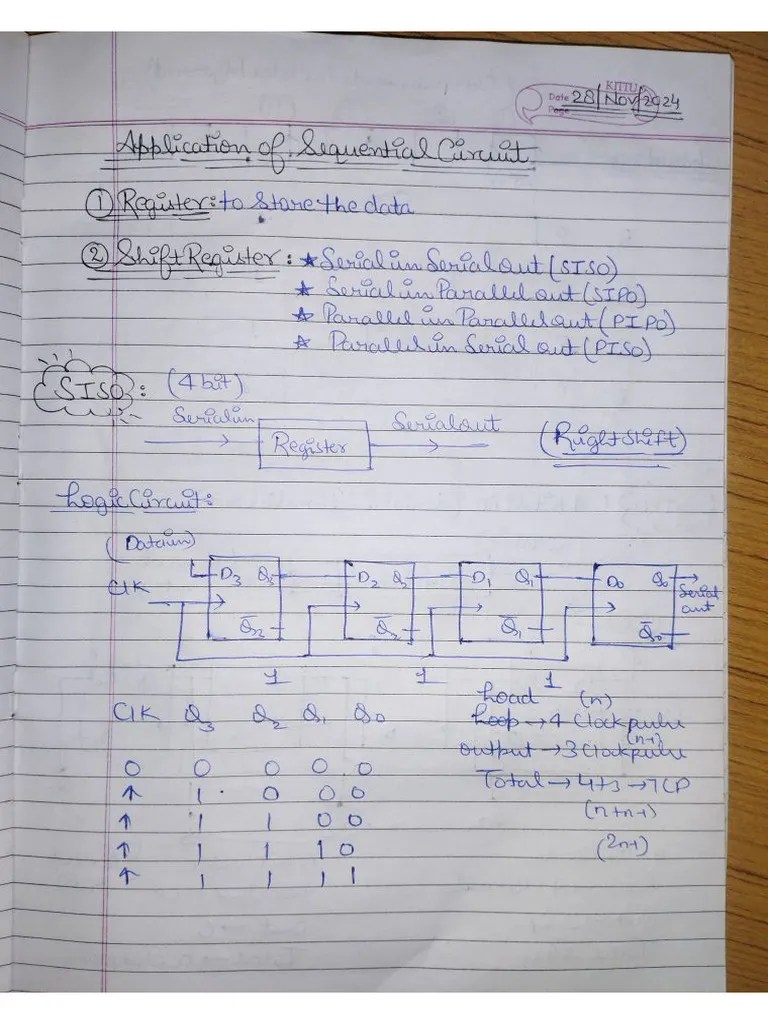 KITTU
Date 28/Nov/2024
Page
Application of Sequential Circuit
① Register: to Store the data
② Shift Register: ★ Serial in Serial out (SISO)
★ Serial in Parallel out (SIPO)
★ Parallel in Parallel out (PIPO)
★ Parallel in Serial out (PISO)
SISO: (4 bit)
Serial in Register Serial out (Right Shift)
Logic Circuit:
(Data in)
D3 Q3 D2 Q2 D1 Q1 D0 Q0
Clk Serial out
Q̅2 Q̅1 Q̅0
1 1 1
Load (n)
Clk Q3 Q2 Q1 Q0
Loop → 4 Clock pulse
(n-1)
output → 3 Clock pulse
0 0 0 0 0
Total → 4+3 → 7 CP
↑ 1 0 0 0
(n+n-1)
↑ 1 1 0 0
↑ 1 1 1 0
(2n-1)
↑ 1 1 1 1